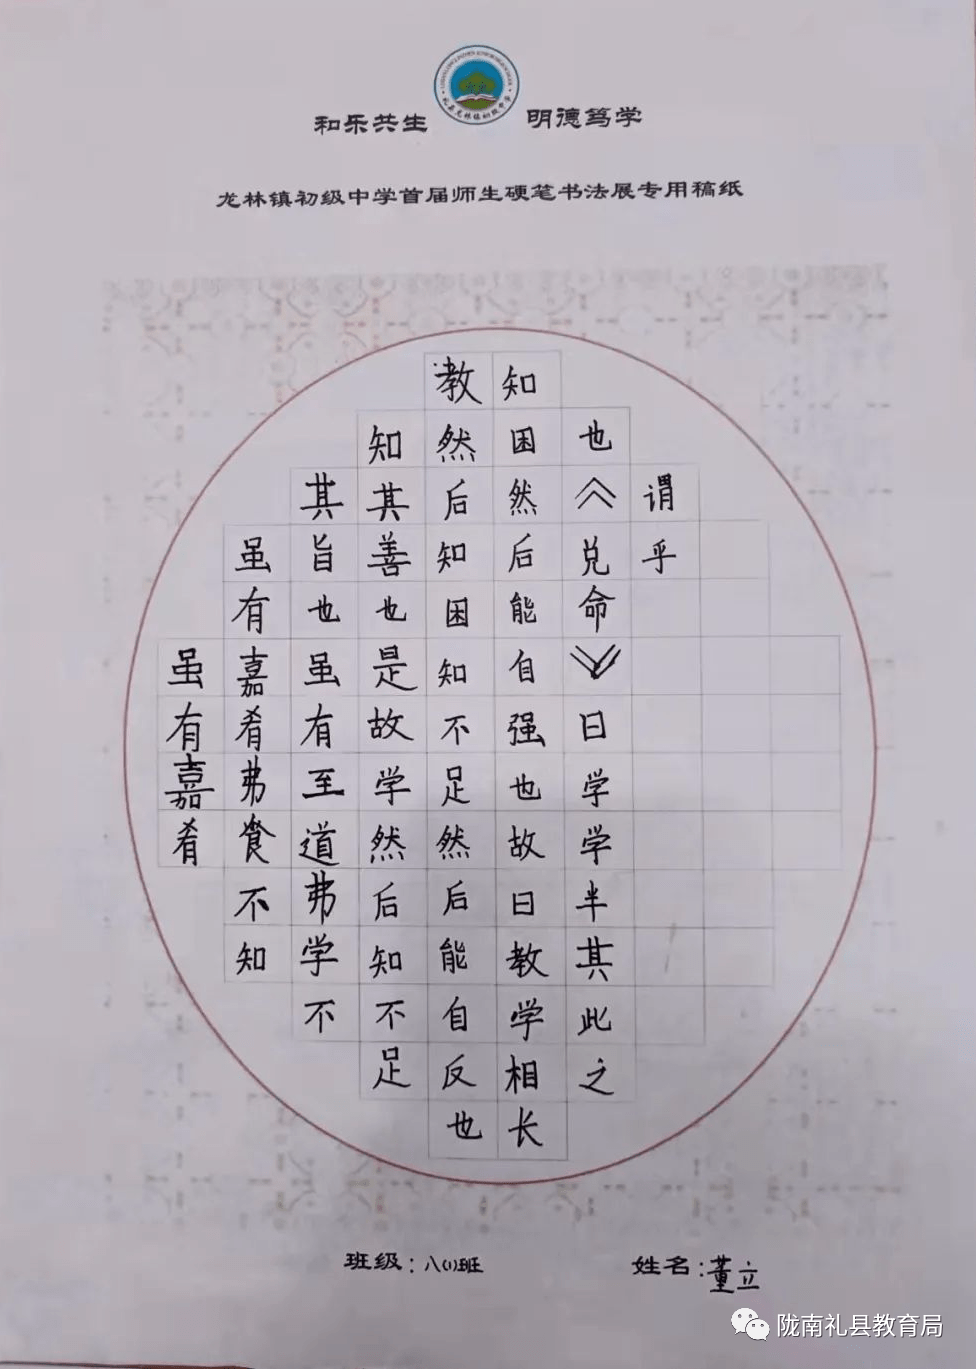 和乐共生 明德笃学
礼县龙林镇初级中学
龙林镇初级中学首届师生硬笔书法展专用稿纸
虽有嘉肴
虽有嘉肴弗食不知
其旨也虽有至道弗学不
知其善也是故学然后知不足
教然后知困知不足然后能自反也
知困然后能自强也故曰教学相长
也《兑命》曰学学半其此之
谓乎
班级:八(1)班 姓名:董立
陇南礼县教育局